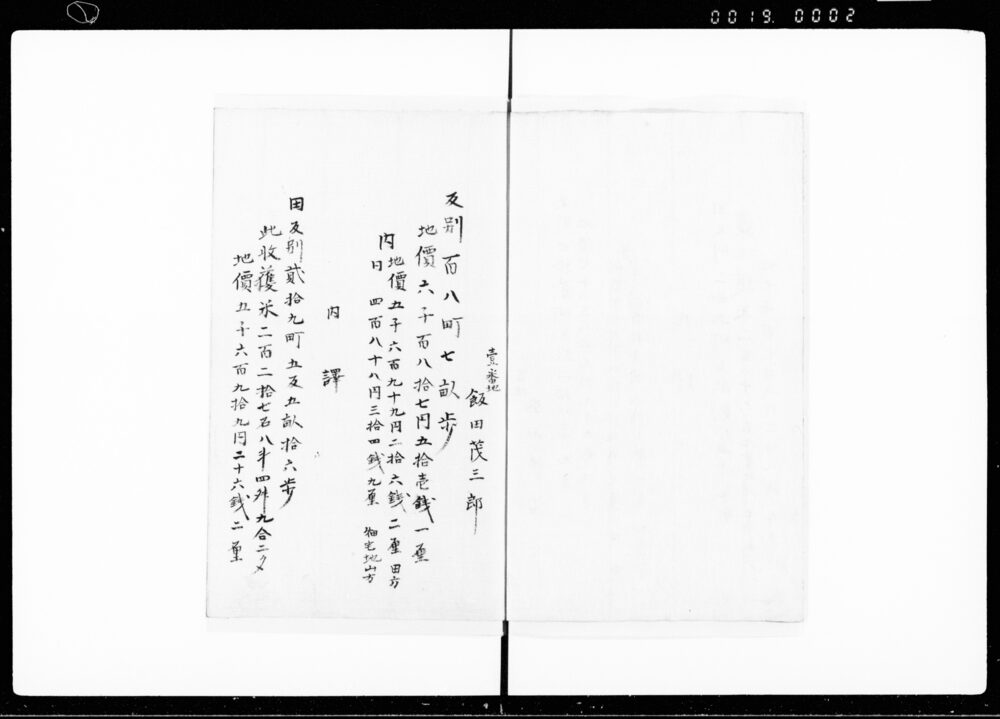 0019. 0002
壹番地
飯田茂三郎
反別百八町七畝歩
地價六千百八拾七円五拾壱銭一厘
内地價五千六百九十九円二拾六銭二厘 田方
同四百八十八円三拾四銭九厘 畑宅地山方
内譯
田反別貳拾九町五反五畝拾六歩
此收穫米二百二拾七石八斗四舛九合二夕
地價五千六百九拾九円二十六銭二厘